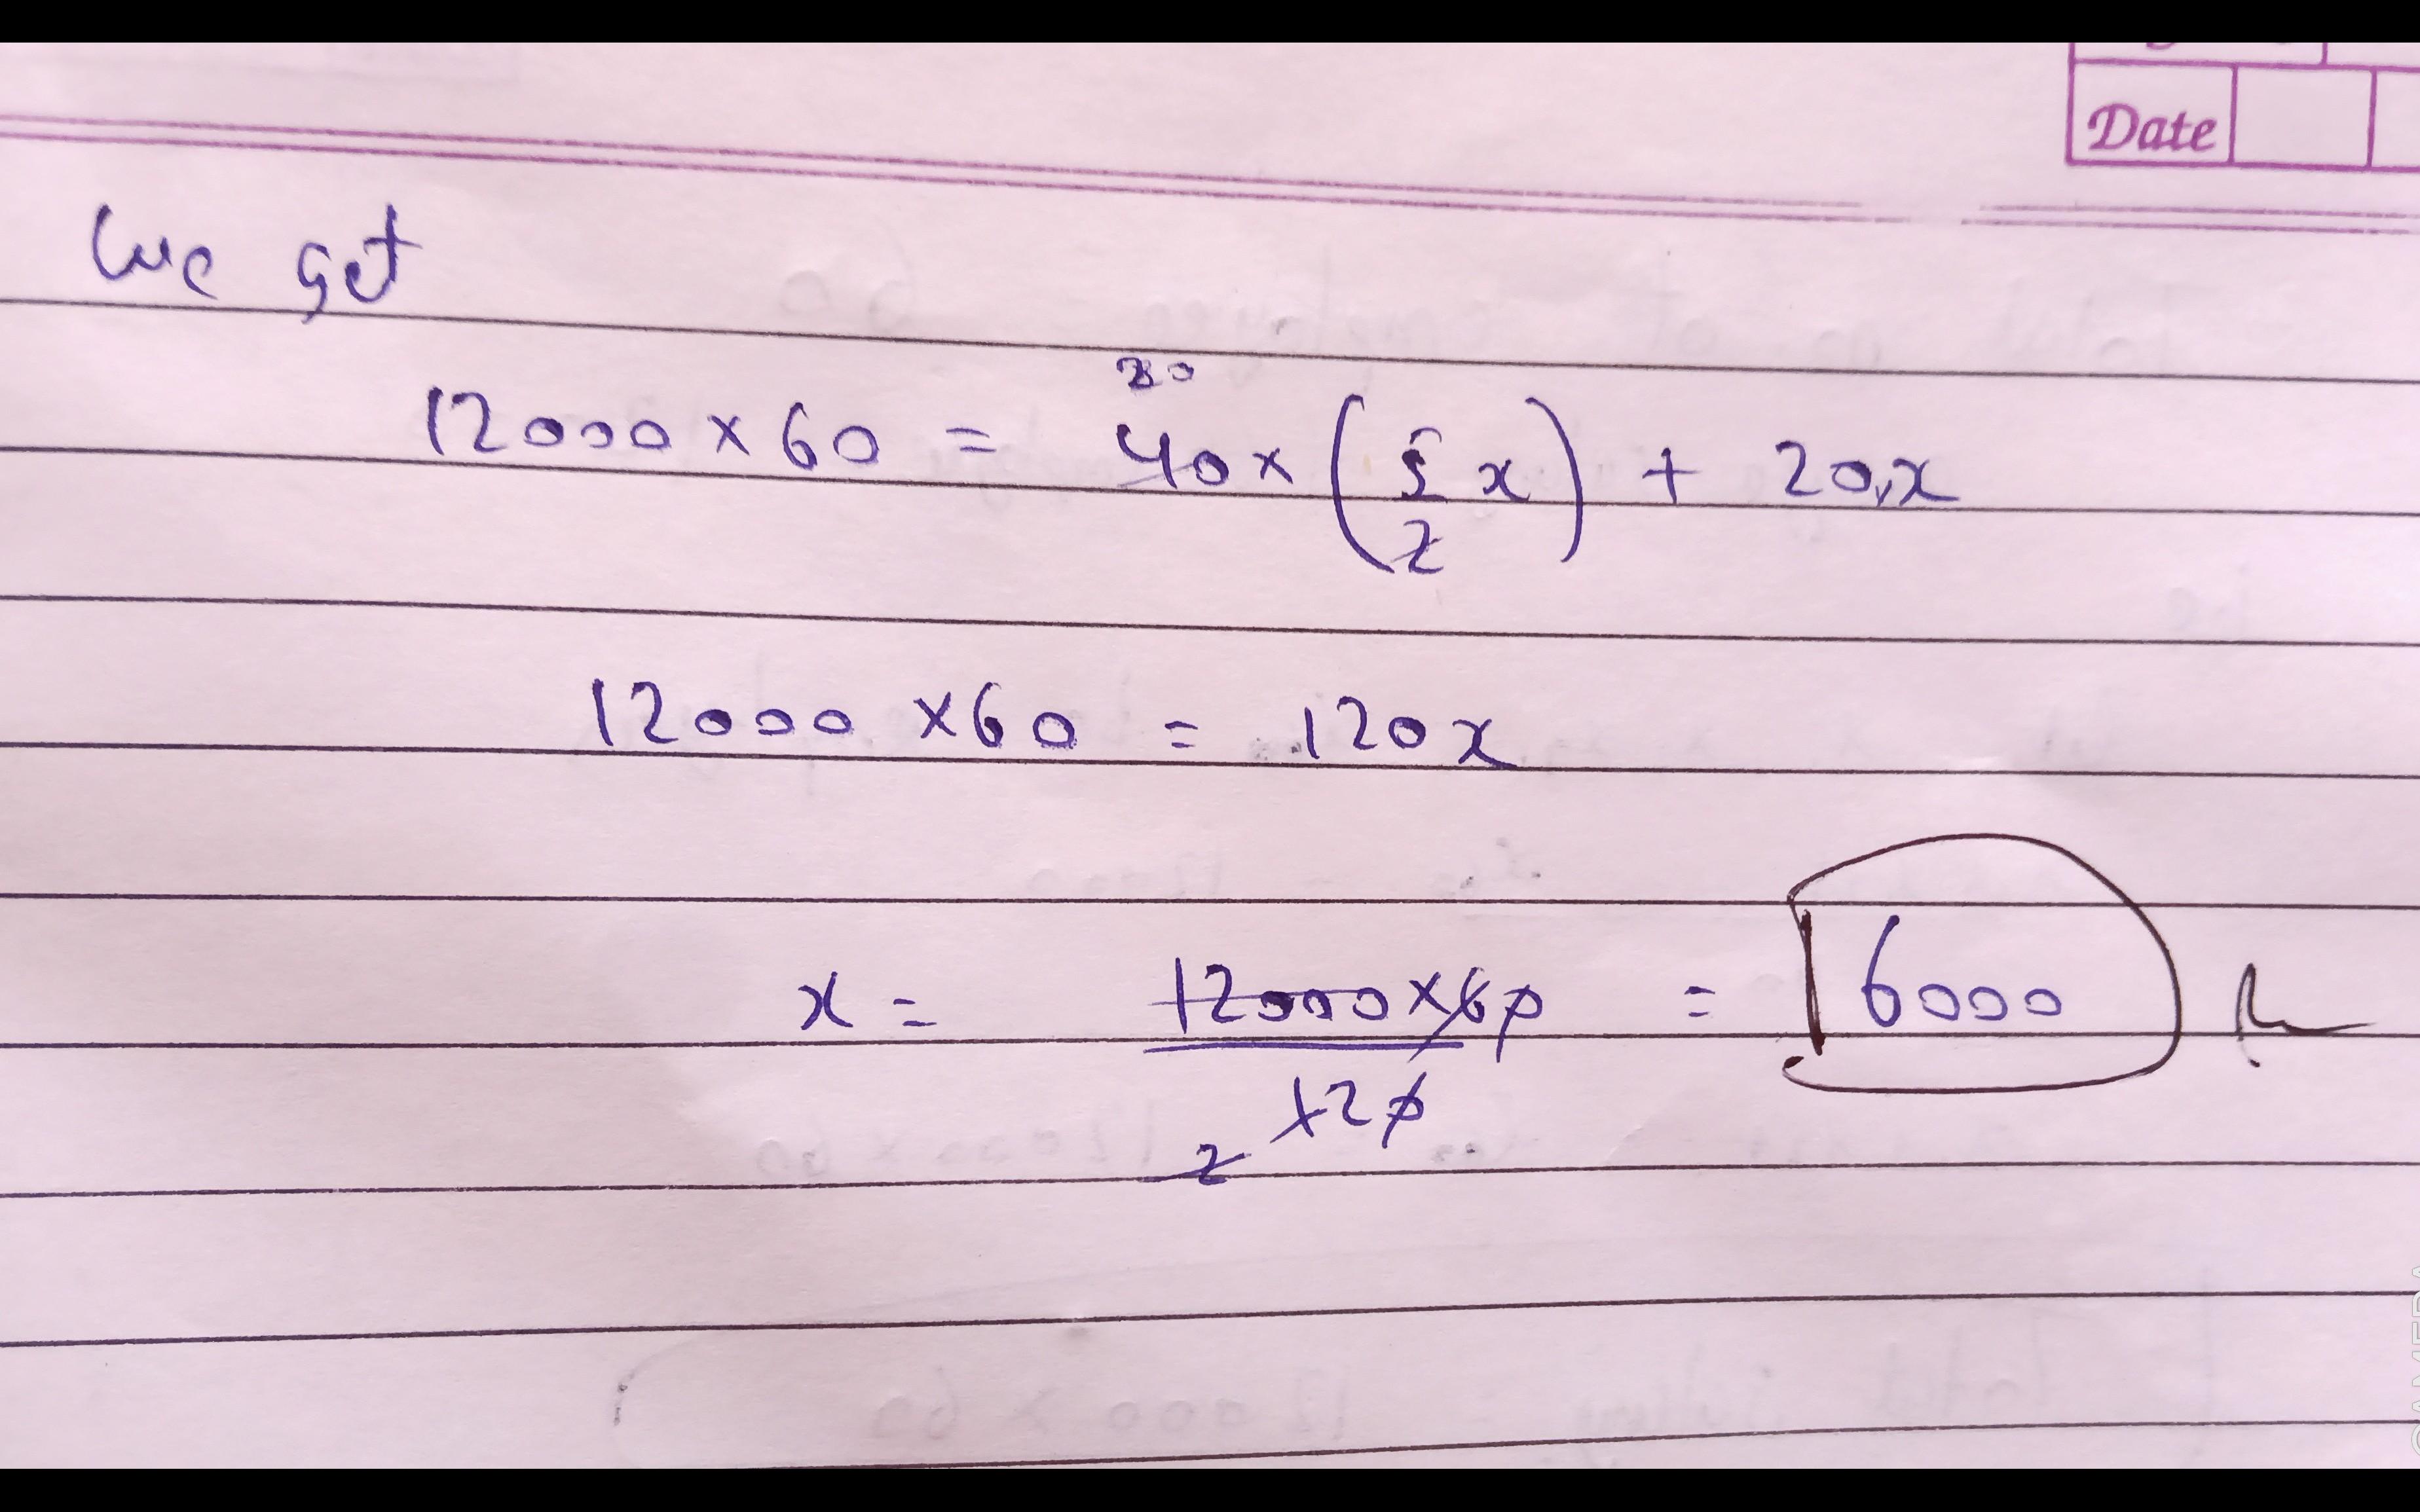 Date
we get
12000 x 60 = 40 x (5/2 x) + 20x
20
12000 x 60 = 120x
x = 12000 x 60 / 120 = 6000
2